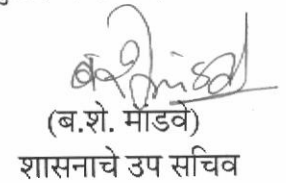 (ब.शे. मांडवे)
शासनाचे उप सचिव